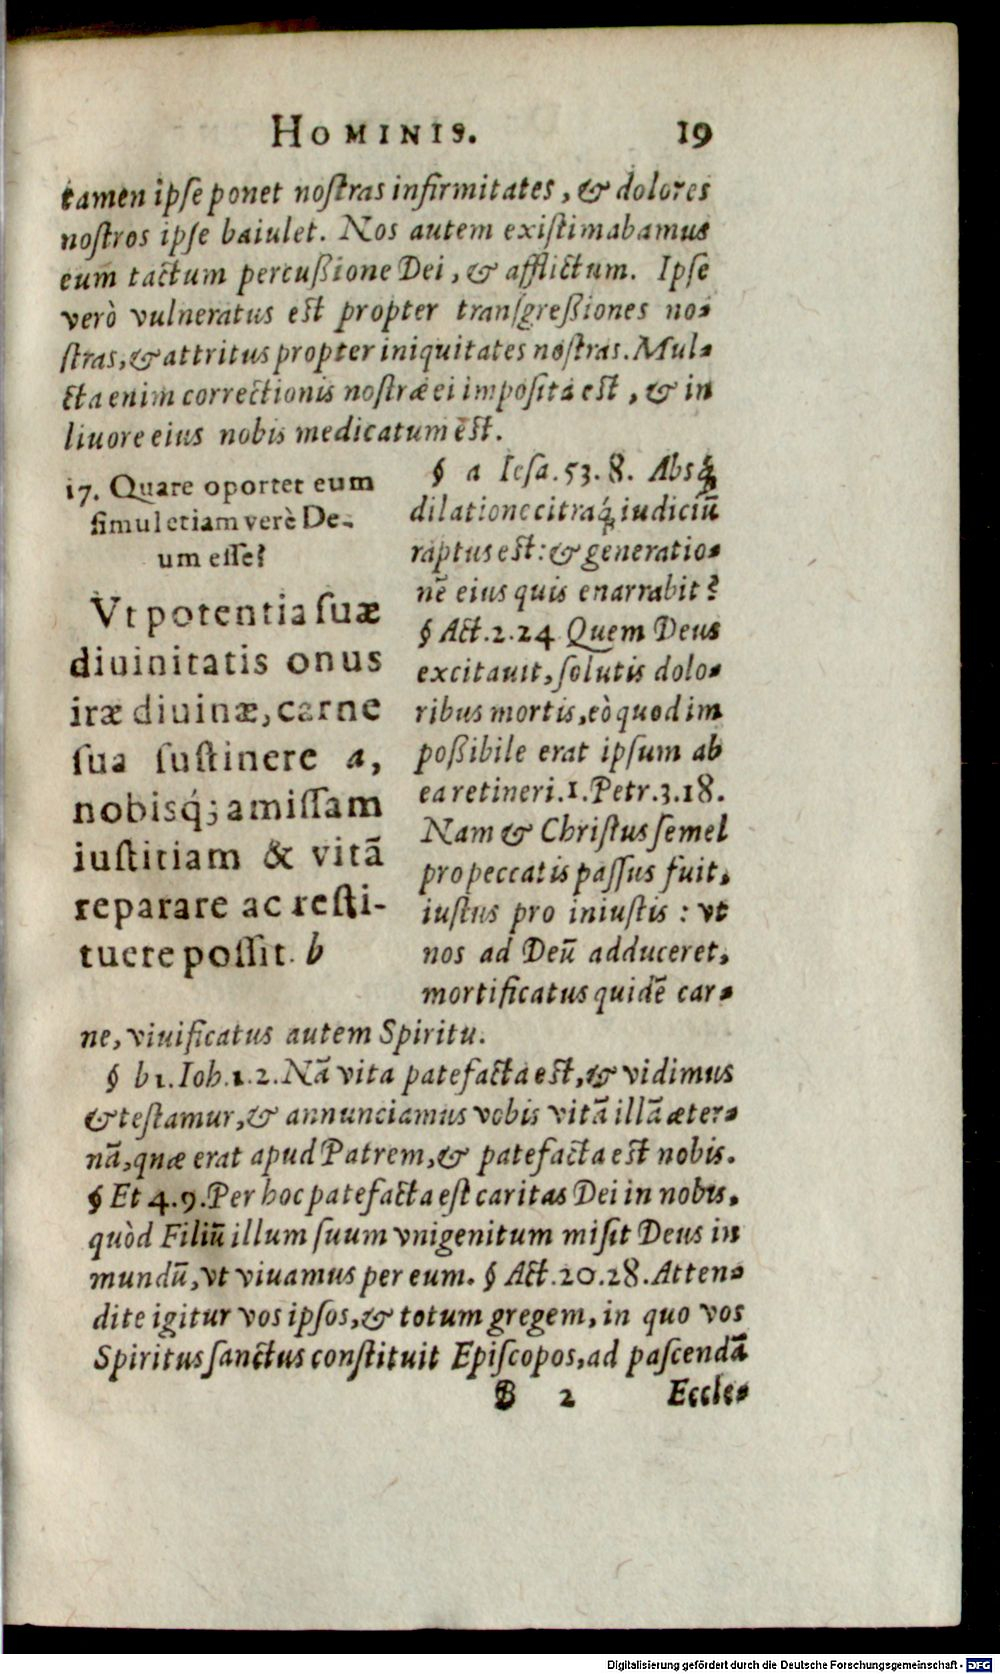 HOMINIS. 19
tamen ipſe ponet noſtras infirmitates, & dolores
noſtros ipſe baiulet. Nos autem exiſtimabamus
eum tactum percußione Dei, & afflictum. Ipſe
verò vulneratus est propter tranſgreßiones no-
ſtras, & attritus propter iniquitates noſtras. Mul-
cta enim correctionis noſtræ ei impoſita est, & in
liuore eius nobis medicatum est.
17. Quare oportet eum
ſimul etiam verè De-
um eſſe?
Vt potentia ſuæ
diuinitatis onus
iræ diuinæ, carne
ſua ſuſtinere a,
nobisq́; amiſſam
iuſtitiam & vitā
reparare ac reſti-
tuere poſſit. b
§ a Ieſa. 53. 8. Absq́;
dilatione citraq́; iudiciū
raptus est: & generatio-
nē eius quis enarrabit?
§ Act. 2. 24 Quem Deus
excitauit, ſolutis dolo-
ribus mortis, eò quod im
poßibile erat ipſum ab
ea retineri. 1. Petr. 3. 18.
Nam & Chriſtus ſemel
pro peccatis paſſus fuit,
iuſtus pro iniuſtis: vt
nos ad Deū adduceret,
mortificatus quidē car-
ne, viuificatus autem Spiritu.
§ b 1. Ioh. 1. 2. Nā vita patefacta est, & vidimus
& teſtamur, & annunciamus vobis vitā illā æter-
nā, quæ erat apud Patrem, & patefacta est nobis.
§ Et 4. 9. Per hoc patefacta eſt caritas Dei in nobis,
quòd Filiū illum ſuum vnigenitum miſit Deus in
mundū, vt viuamus per eum. § Act. 20. 28. Atten-
dite igitur vos ipſos, & totum gregem, in quo vos
Spiritus ſanctus conſtituit Epiſcopos, ad paſcendā
B 2 Eccle-
Digitalisierung gefördert durch die Deutsche Forschungsgemeinschaft - DFG